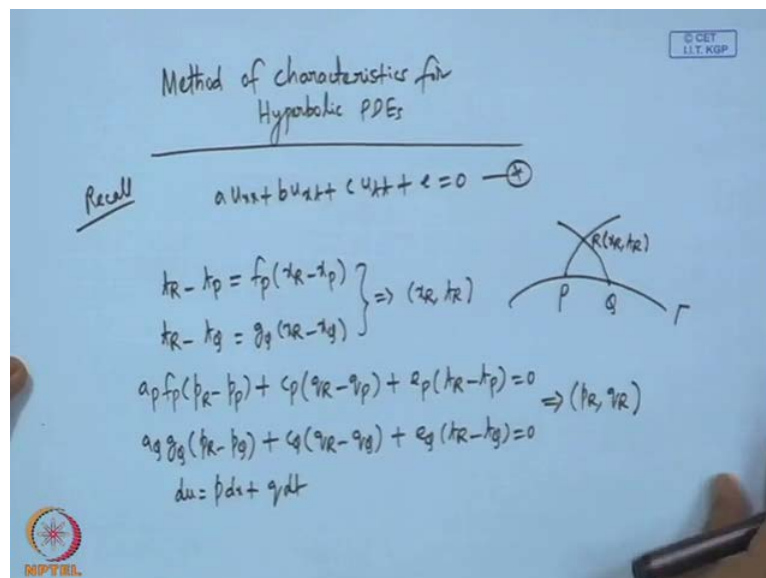 © CET
I.I.T. KGP
Method of characteristics for
Hyperbolic PDEs
Recall
a uxx + b uxt + c utt + e = 0 — *
tR - tP = fP(xR - xP)
tR - tQ = gQ(xR - xQ)
} => (xR, tR)
R(xR, tR)
P Q Γ
aP fP(pR - pP) + cP(qR - qP) + eP(tR - tP) = 0
aQ gQ(pR - pQ) + cQ(qR - qQ) + eQ(tR - tQ) = 0
=> (pR, qR)
du = pdx + qdt
NPTEL